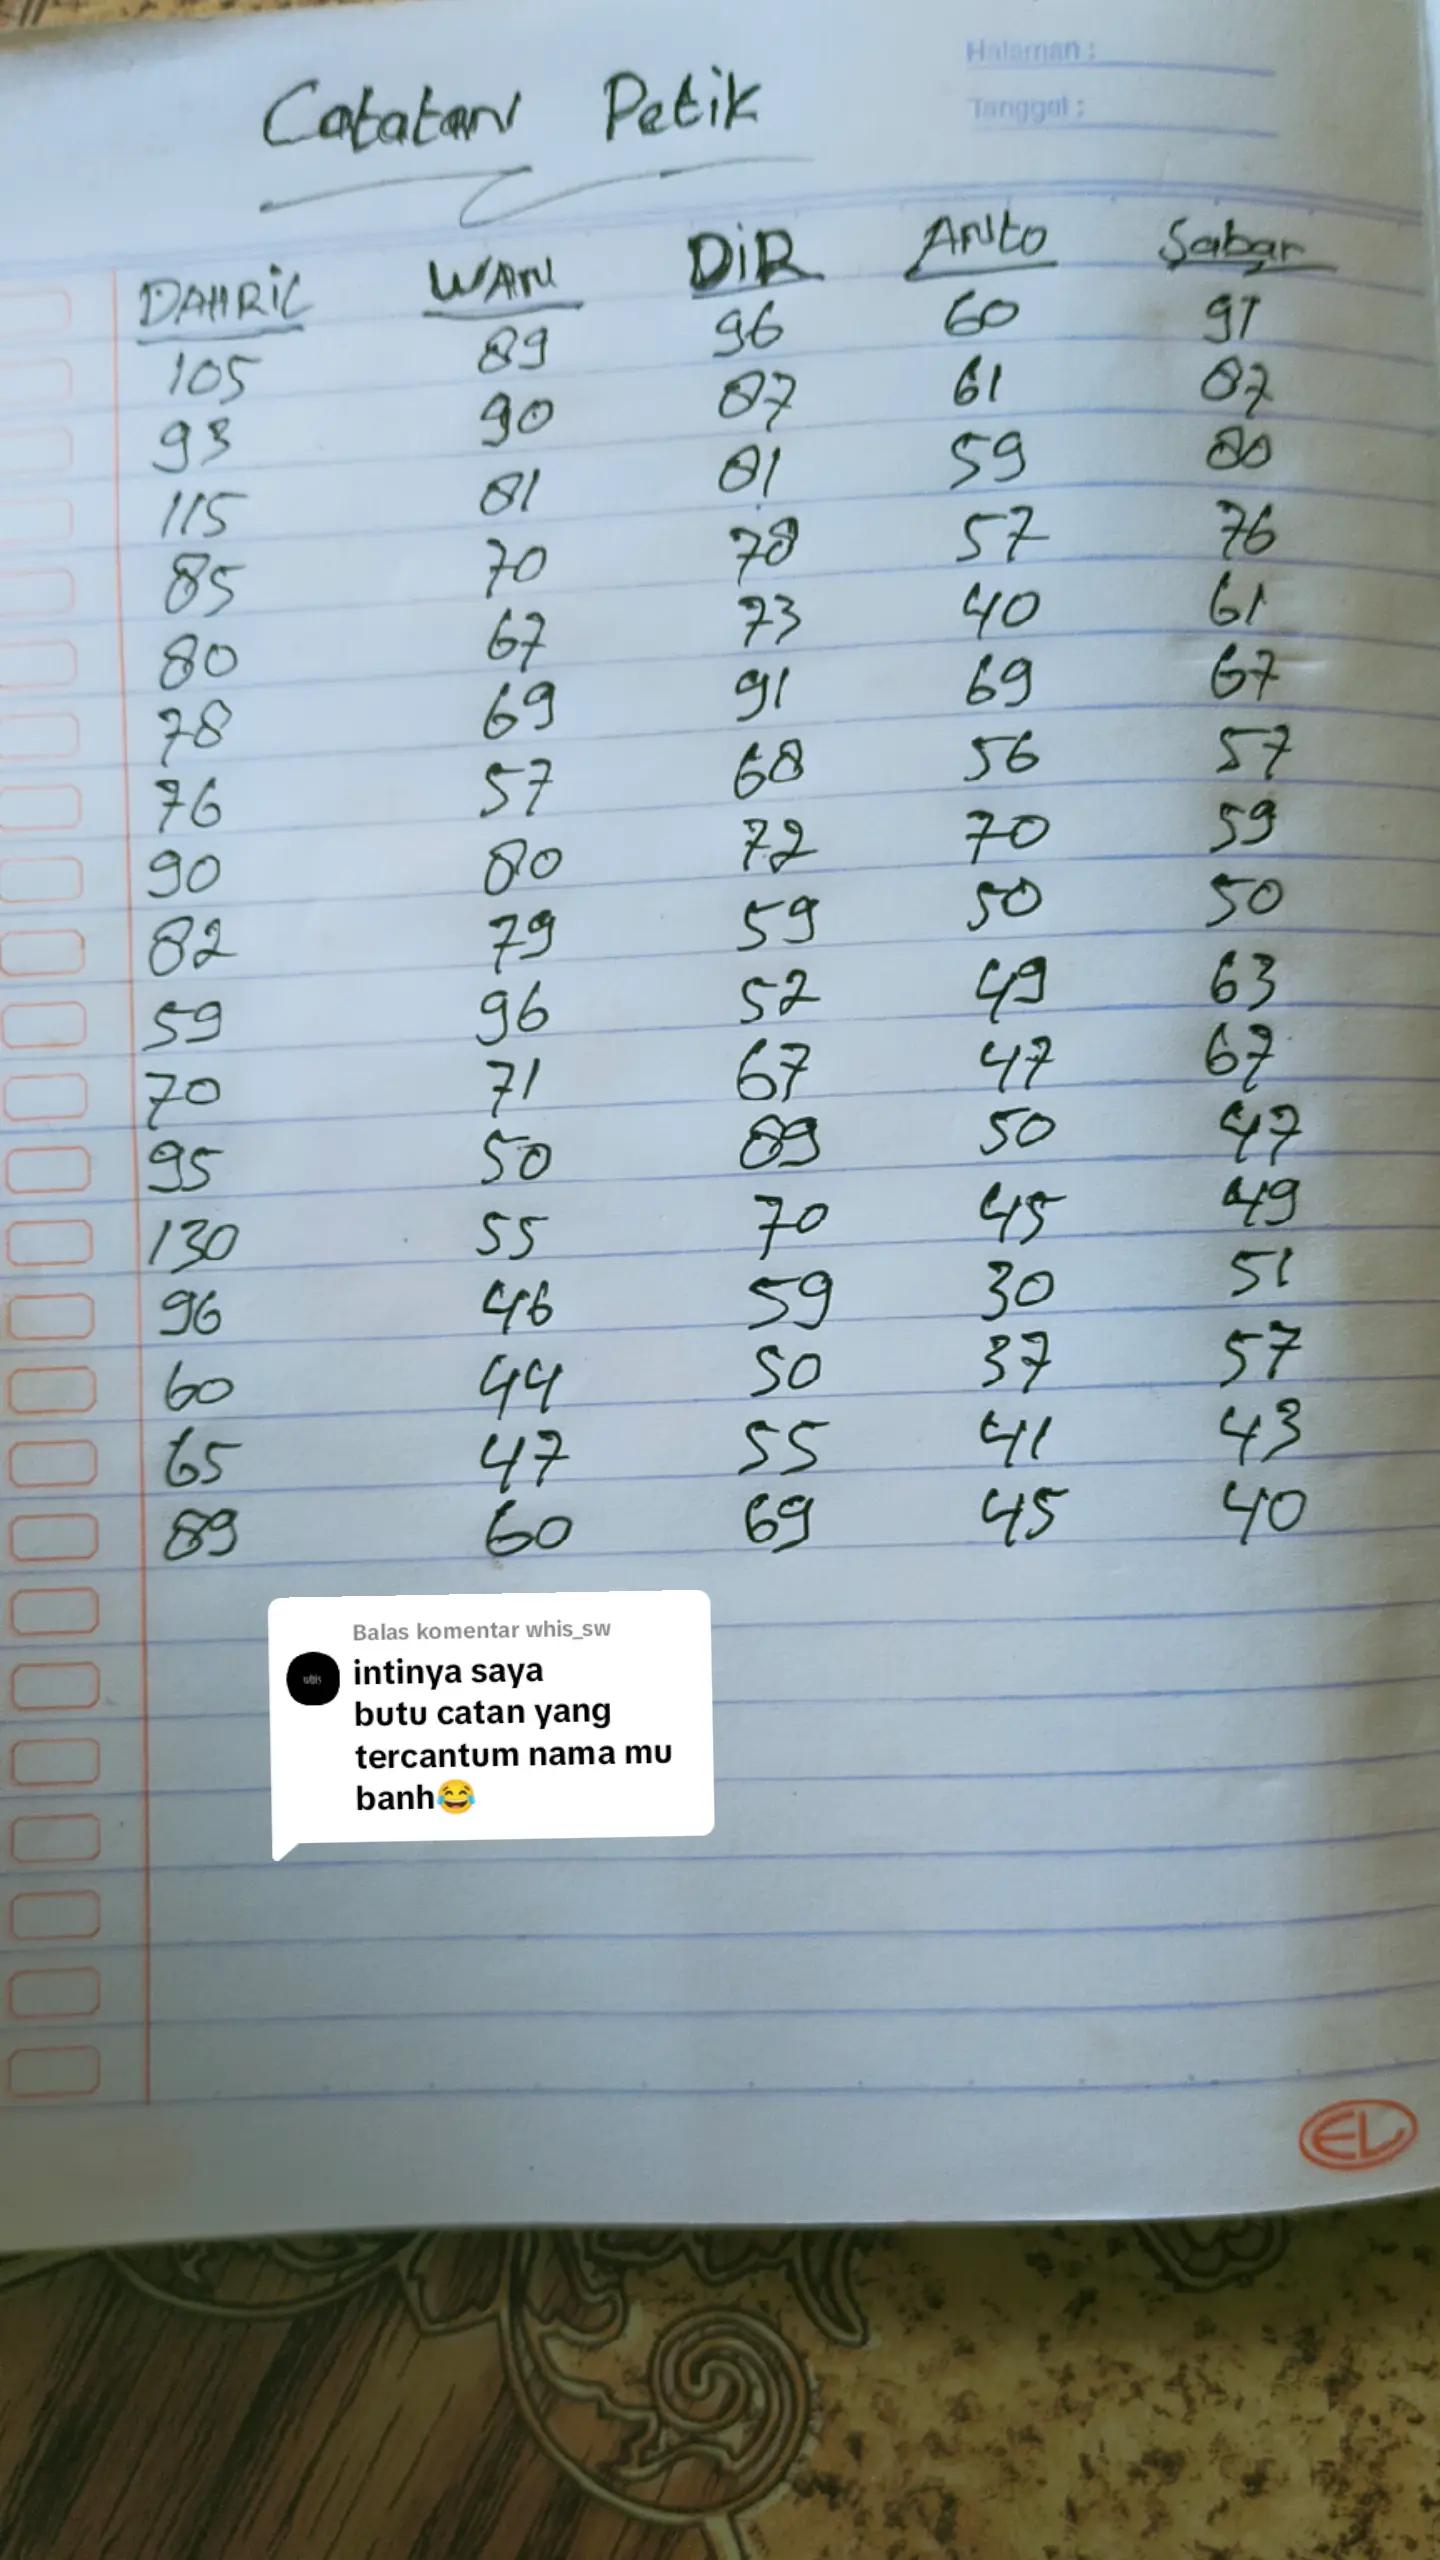 Halaman :
Tanggal :
Catatan Petik
DAHRIL WAN DIR ANto Sabar
105 89 96 60 91
93 90 87 61 87
115 81 81 59 80
85 70 78 57 76
80 67 73 40 61
78 69 91 69 67
76 57 68 56 57
90 80 72 70 59
82 79 59 50 50
59 96 52 49 63
70 71 67 47 67
95 50 89 50 47
130 55 70 45 49
96 46 59 30 51
60 44 50 37 57
65 47 55 41 43
89 60 69 45 40
Balas komentar whis_sw
intinya saya
butu catan yang
tercantum nama mu
banh😂
EL